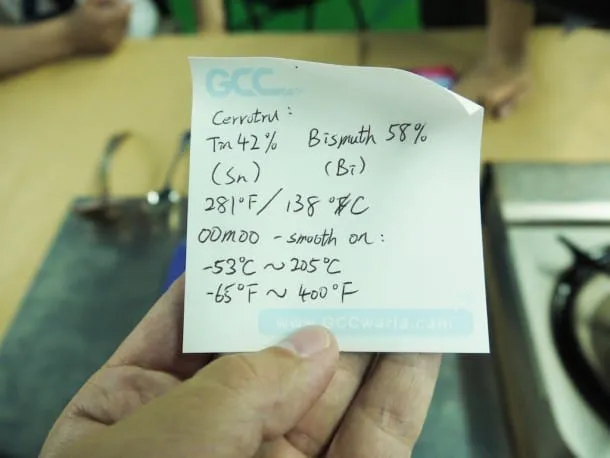 GCC
Cerrotru :
Tin 42% Bismuth 58%
(Sn) (Bi)
281°F / 138 °C
OOMOO - smooth on :
-53°C ~ 205°C
-65°F ~ 400°F
www.GCCworld.com